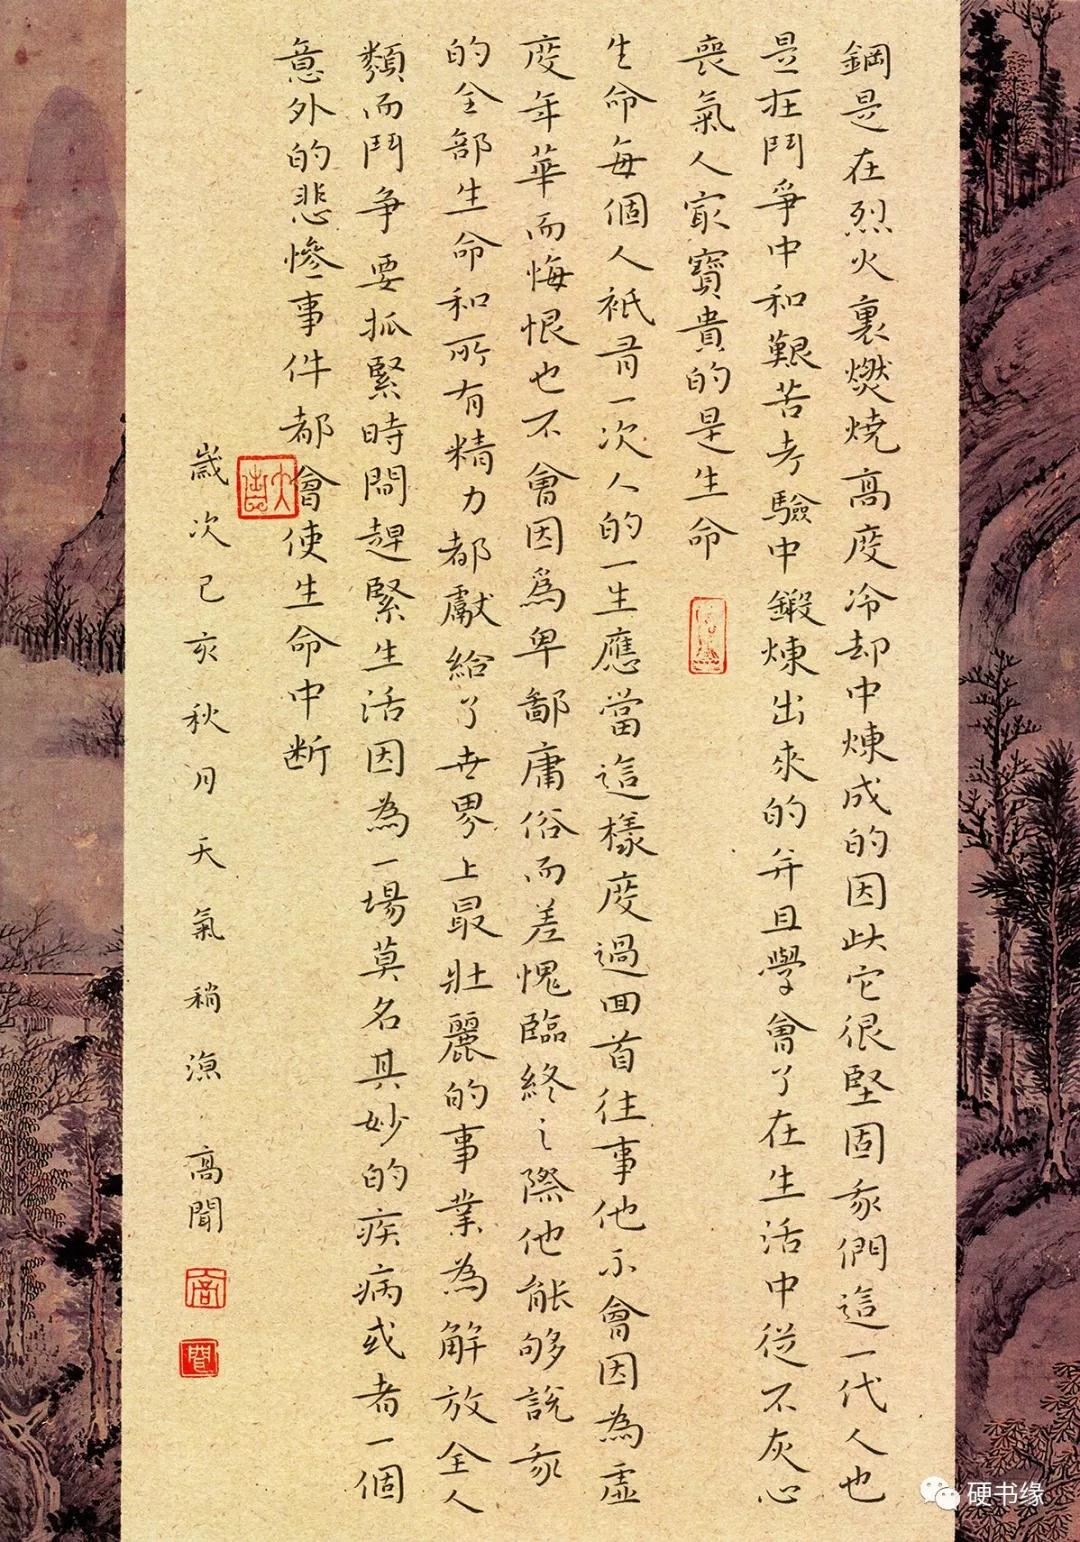 鋼是在烈火裏燃燒高度冷却中煉成的因此它很堅固我們這一代人也
是在鬥爭中和艱苦考驗中鍛煉出來的并且學會了在生活中從不灰心
喪氣人最寶貴的是生命
生命每個人衹有一次人的一生應當這樣度過回首往事他不會因為虛
度年華而悔恨也不會因爲卑鄙庸俗而羞愧臨終之際他能够說我
的全部生命和所有精力都獻給了世界上最壯麗的事業為解放全人
類而鬥争要抓緊時間趕緊生活因為一場莫名其妙的疾病或者一個
意外的悲慘事件都會使生命中断
歲次己亥秋月天氣稍涼 高聞
高
聞
硬书缘